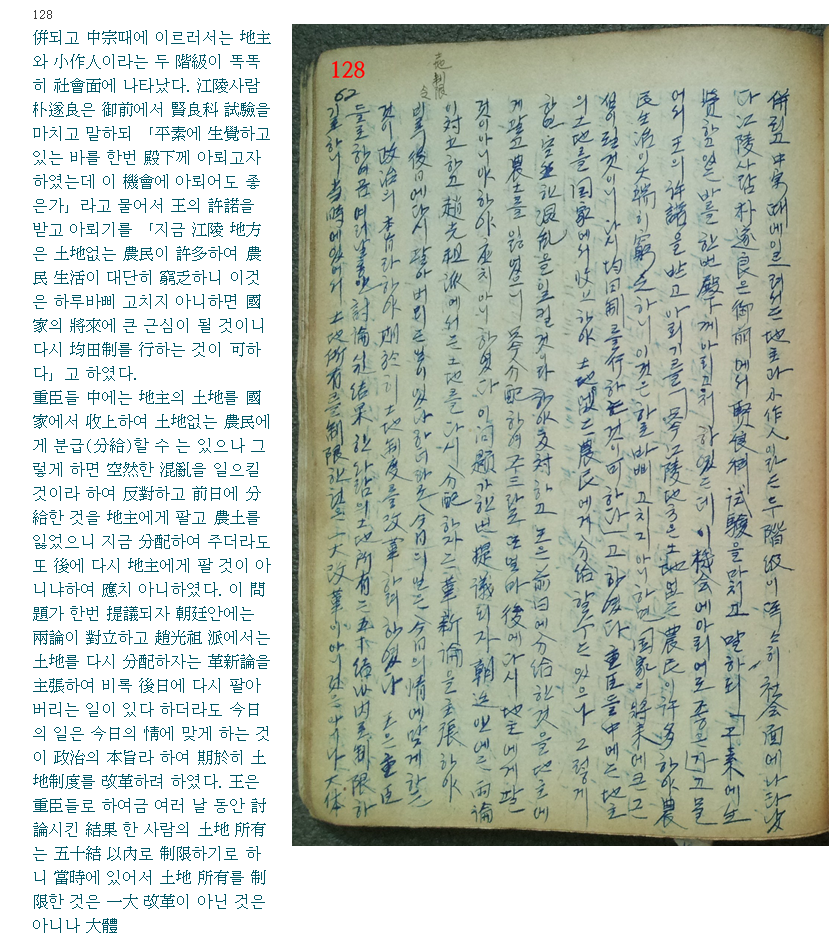 128
併되고 中宗때에 이르러서는 地主
와 小作人이라는 두 階級이 똑똑
히 社會面에 나타났다. 江陵사람
朴遂良은 御前에서 賢良科 試驗을
마치고 말하되 「平素에 生覺하고
있는 바를 한번 殿下께 아뢰고자
하였는데 이 機會에 아뢰어도 좋
은가」라고 물어서 王의 許諾을
받고 아뢰기를 「지금 江陵 地方
은 土地없는 農民이 許多하여 農
民 生活이 대단히 窮乏하니 이것
은 하루바삐 고치지 아니하면 國
家의 將來에 큰 근심이 될 것이니
다시 均田制를 行하는 것이 可하
다」고 하였다.
重臣들 中에는 地主의 土地를 國
家에서 收上하여 土地없는 農民에
게 분급(分給)할 수 는 있으나 그
렇게 하면 空然한 混亂을 일으킬
것이라 하여 反對하고 前日에 分
給한 것을 地主에게 팔고 農土를
잃었으니 지금 分配하여 주더라도
또 後에 다시 地主에게 팔 것이 아
니냐하여 應치 아니하였다. 이 問
題가 한번 提議되자 朝廷안에는
兩論이 對立하고 趙光祖 派에서는
土地를 다시 分配하자는 革新論을
主張하여 비록 後日에 다시 팔아
버리는 일이 있다 하더라도 今日
의 일은 今日의 情에 맞게 하는 것
이 政治의 本旨라 하여 期於히 土
地制度를 改革하려 하였다. 王은
重臣들로 하여금 여러 날 동안 討
論시킨 結果 한 사람의 土地 所有
는 五十結 以內로 制限하기로 하
니 當時에 있어서 土地 所有를 制
限한 것은 一大 改革이 아닌 것은
아니나 大體
128
土地制限
62
併되고 中宗때에이르러서는 地主와 小作人이라는 두 階級이 똑똑히 社会面에 나타났
다 江陵사람 朴遂良은 御前에서 賢良科 試驗을 마치고 말하되 「平素에 生
覺하고 있는 바를 한번 殿下께 아뢰고저 하였는데 이 機会에 아뢰어도 좋은가고 물
어서 王의 許諾을 받고 아뢰기를 「至今 江陵地方은 土地없는 農民이 許多하야 農
民生活이 大端히 窮乏하니 이것은 하로바삐 고치지 아니하면 国家의 將来에 큰 근
심이 될 것이니 다시 均田制를 行하는 것이 可하다」고 하였다 重臣들 中에는 地主
의 土地를 国家에서 收上하야 土地없는 農民에게 分給할 수는 있으나 그렇게
하면 空然한 混乱을 일으킬 것이라 하야 反対하고 또는 前日에 分給한 것을 地主에
게 팔고 農土를 잃었으니 至今 分配하여 주드라도 또 얼마 後에 다시 地主에게 팔
것이 아니냐 하야 応치 아니하였다 이 問題가 한번 提議되자 朝廷안에는 両論
이 対立하고 趙光祖派에서는 土地를 다시 分配하자는 革新論을 主張하야
비록 後日에 다시 팔아버리는 일이 있다 하더라도 今日의 일은 今日의 情에 맞게 하는
것이 政治의 本旨라 하야 期於히 土地制度를 改革하려 하였다 王은 重臣
들로 하여금 여러날동안 討論식힌 結果 한사람의 土地所有는 五十結以内로 制限하
기로 하니 当時에 있어서 土地所有를 制限한 것은 一大改革이 아닌것은 아니나 大体